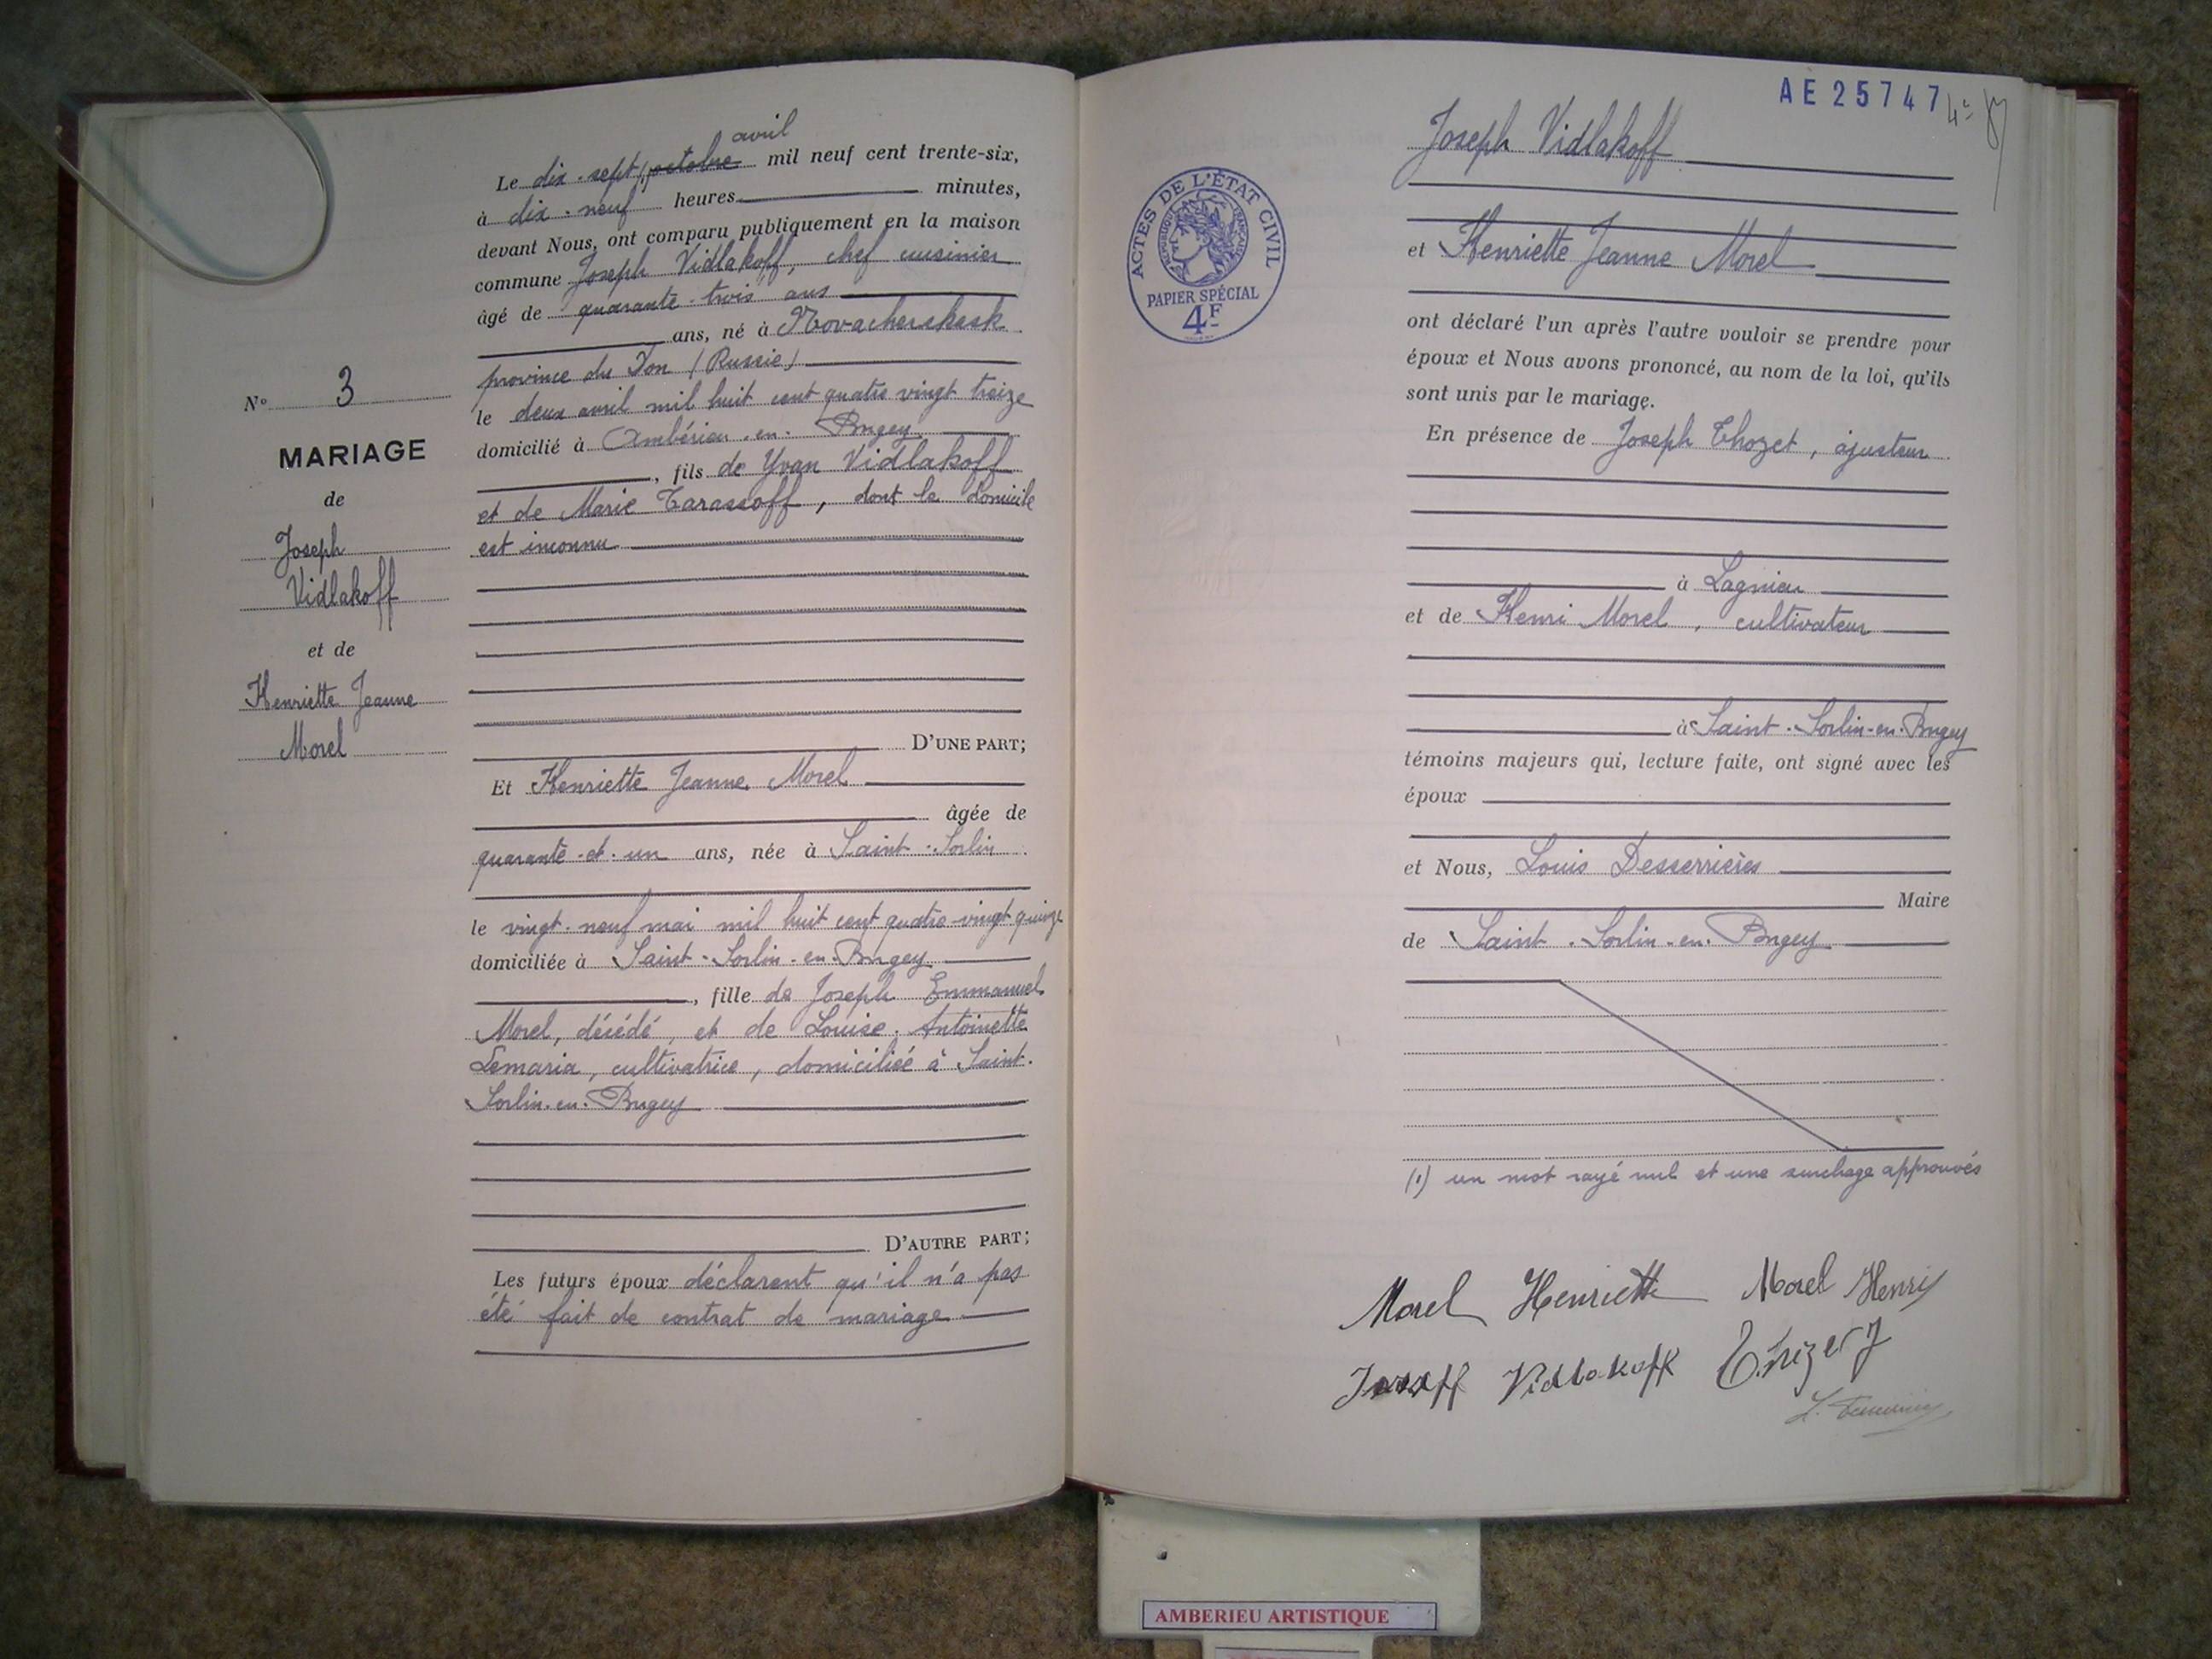 N° 3
MARIAGE
de
Joseph
Vidlakoff
et de
Henriette Jeanne
Morel
avril
Le dix-sept octobre mil neuf cent trente-six,
à dix-neuf heures minutes,
devant Nous, ont comparu publiquement en la maison
commune Joseph Vidlakoff, chef cuisinier
âgé de quarante-trois ans
ans, né à Novocherskask
province du Don (Russie)
le deux avril mil huit cent quatre vingt treize
domicilié à Ambérieu-en-Bugey
, fils de Yvan Vidlakoff
et de Marie Tarassoff, dont le domicile
est inconnu
D'UNE PART;
Et Henriette Jeanne Morel
âgée de
quarante-et-un ans, née à Saint-Sorlin
le vingt-neuf mai mil huit cent quatre-vingt quinze
domiciliée à Saint-Sorlin-en-Bugey
, fille de Joseph Emmanuel
Morel, décédé, et de Louise Antoinette
Lemaria, cultivatrice, domiciliée à Saint-
Sorlin-en-Bugey
D'AUTRE PART;
Les futurs époux déclarent qu'il n'a pas
été fait de contrat de mariage
AE25747
4e
ACTES DE L'ÉTAT CIVIL
RÉPUBLIQUE FRANÇAISE
PAPIER SPÉCIAL
4F
Joseph Vidlakoff
et Henriette Jeanne Morel
ont déclaré l'un après l'autre vouloir se prendre pour
époux et Nous avons prononcé, au nom de la loi, qu'ils
sont unis par le mariage.
En présence de Joseph Thozet, ajusteur
à Lagnieu
et de Henri Morel, cultivateur
à Saint-Sorlin-en-Bugey
témoins majeurs qui, lecture faite, ont signé avec les
époux
et Nous, Louis Desserrières
Maire
de Saint-Sorlin-en-Bugey
(1) un mot rayé nul et une surchage approuvés
Morel Henriette Morel Henri
Vidlakoff
AMBERIEU ARTISTIQUE